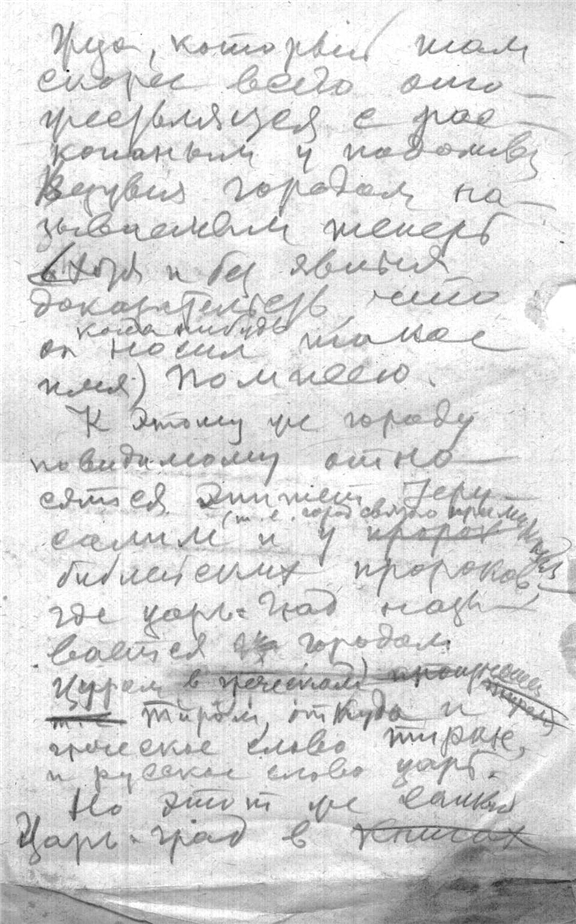 который там
скорее всего ото-
жествляется с рас-
копаным у подошвы
Везувия городом на-
зываемым теперь
(хотя и без явных
доказательств, что
когда нибудь
он носил такое
имя) Помпеею.
К этому же городу
повидимому отно-
сятся эпитет Иеру-
(т. е. город святого
салим и у пророк
библейских пророков,
где царь-град назы-
вается городом
Цуром в греческом
Тиром, откуда и
греческое слово тиран,
и русское слово царь.
Но этот же самый
Царь-град в книгах